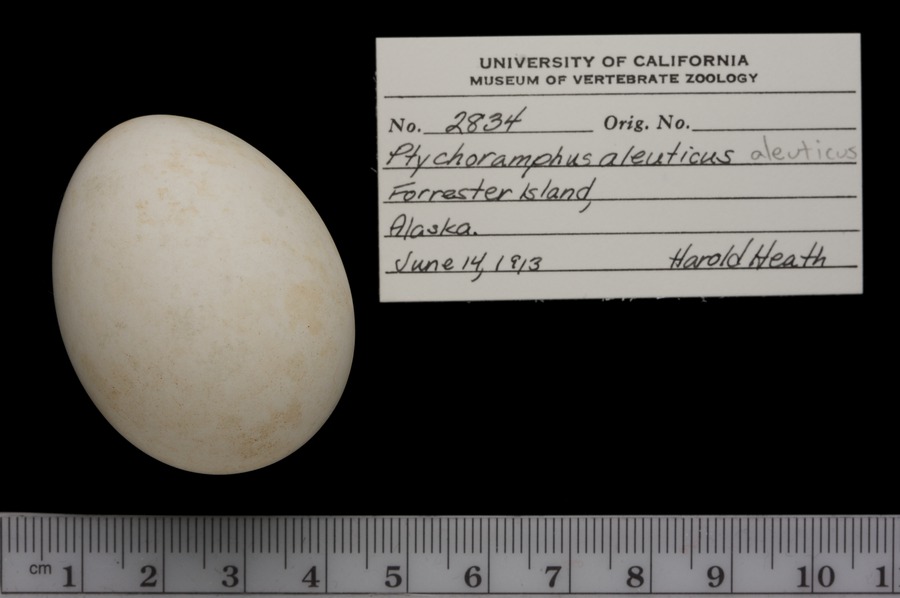 UNIVERSITY OF CALIFORNIA
MUSEUM OF VERTEBRATE ZOOLOGY
No. 2834 Orig. No.
Ptychoramphus aleuticus aleuticus
Forrester Island,
Alaska.
June 14, 1913 Harold Heath
cm 1 2 3 4 5 6 7 8 9 10 1